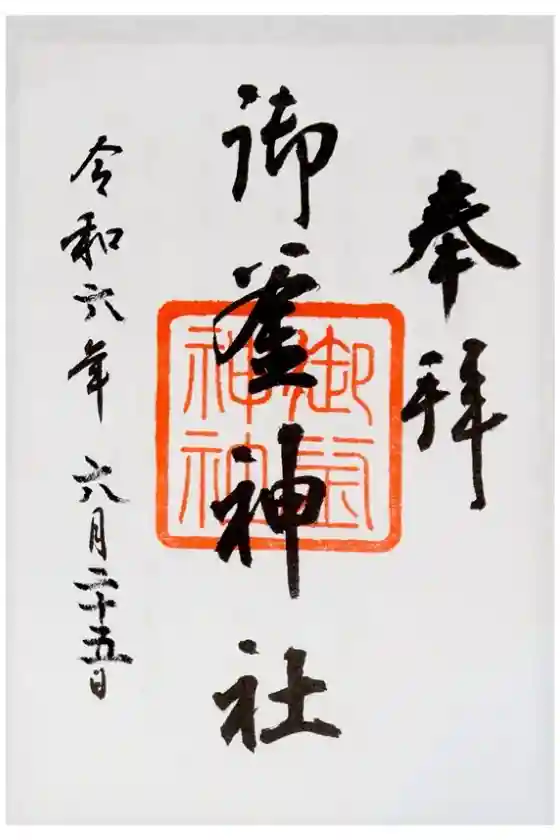 奉拝
御釜神社
御釜
神社
令和六年 六月二十五日